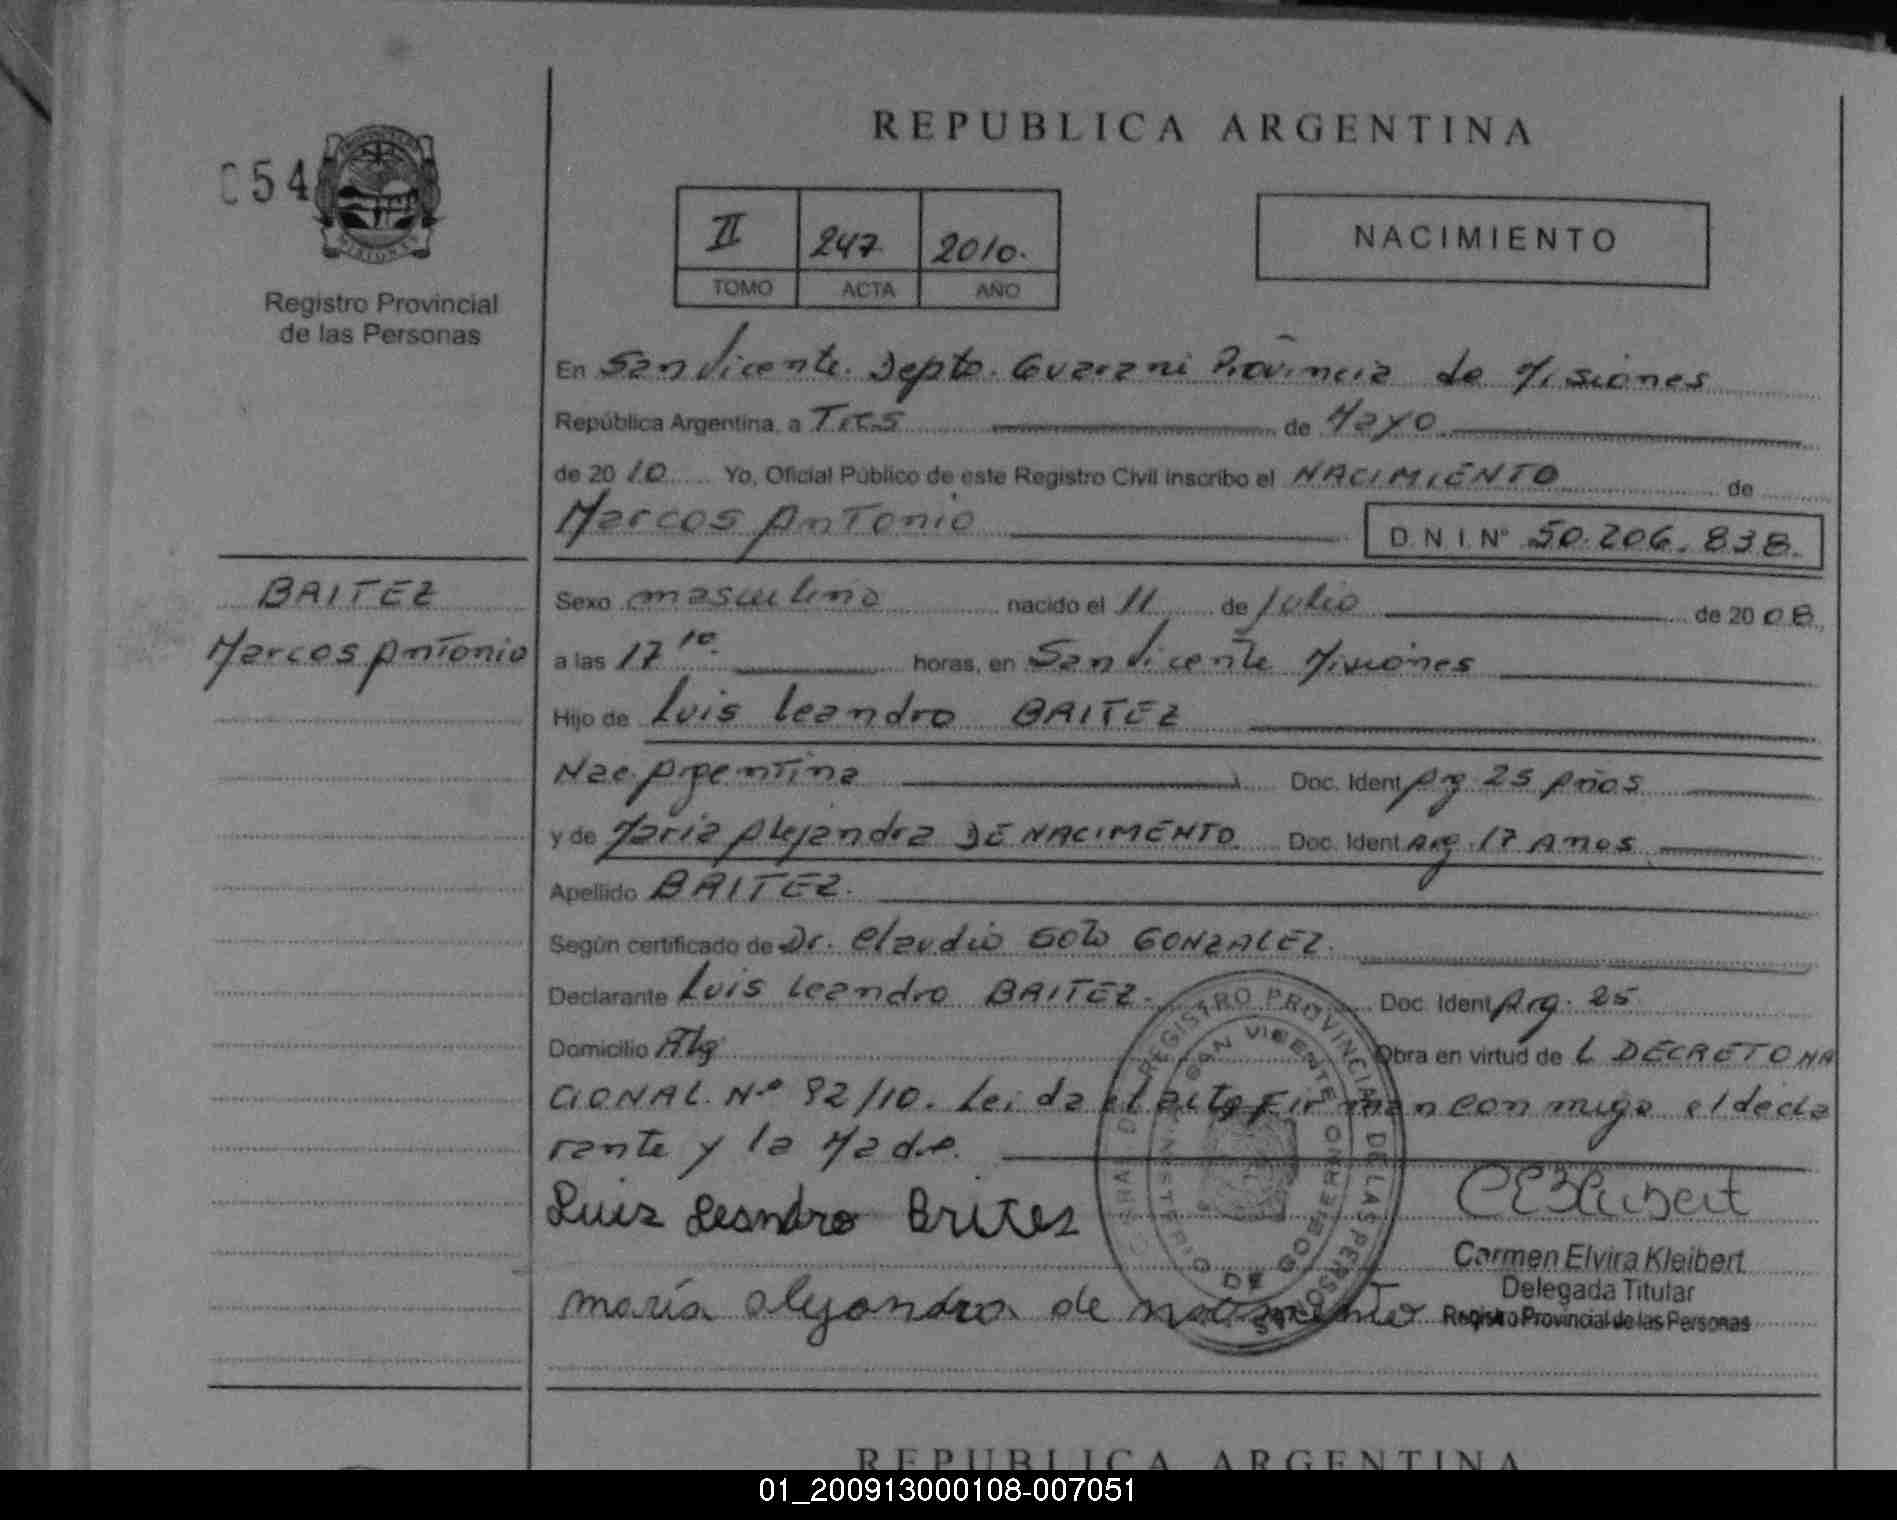 REPUBLICA ARGENTINA
054
II 247 2010.
TOMO ACTA AÑO
NACIMIENTO
MISIONES
Registro Provincial
de las Personas
En San Vicente. Depto. Guarani Provincia de Misiones
República Argentina, a Tres de Mayo
de 2010 Yo, Oficial Público de este Registro Civil inscribo el NACIMIENTO de
Marcos Antonio D.N.I. Nº 50.206.838.
BAITEZ
Marcos Antonio
Sexo masculino nacido el 11 de Julio de 2008
a las 17 10. horas, en San Vicente Misiones
Hijo de Luis Leandro BAITEZ
Nac. Argentina Doc. Ident Arg 25 Años
y de Maria Alejandra DE NACIMENTO Doc. Ident Arg. 17 Anos
Apellido BAITEZ.
Según certificado de Dr. Claudio GONZALEZ.
Declarante Luis Leandro BAITEZ. Doc. Ident Arg. 25
Domicilio Obra en virtud de L DECRETO NA
CIONAL. Nº 92/10. Leida el acta Firman con migo el decla
rante y la Madre.
Luiz Leandro Brites
maría alejandra de nacimento
REGISTRO PROVINCIAL DE LAS PERSONAS
SAN VICENTE
MINISTERIO DE GOBIERNO
Carmen Elvira Kleibert
Delegada Titular
Registro Provincial de las Personas
REPUBLICA ARGENTINA
01_200913000108-007051